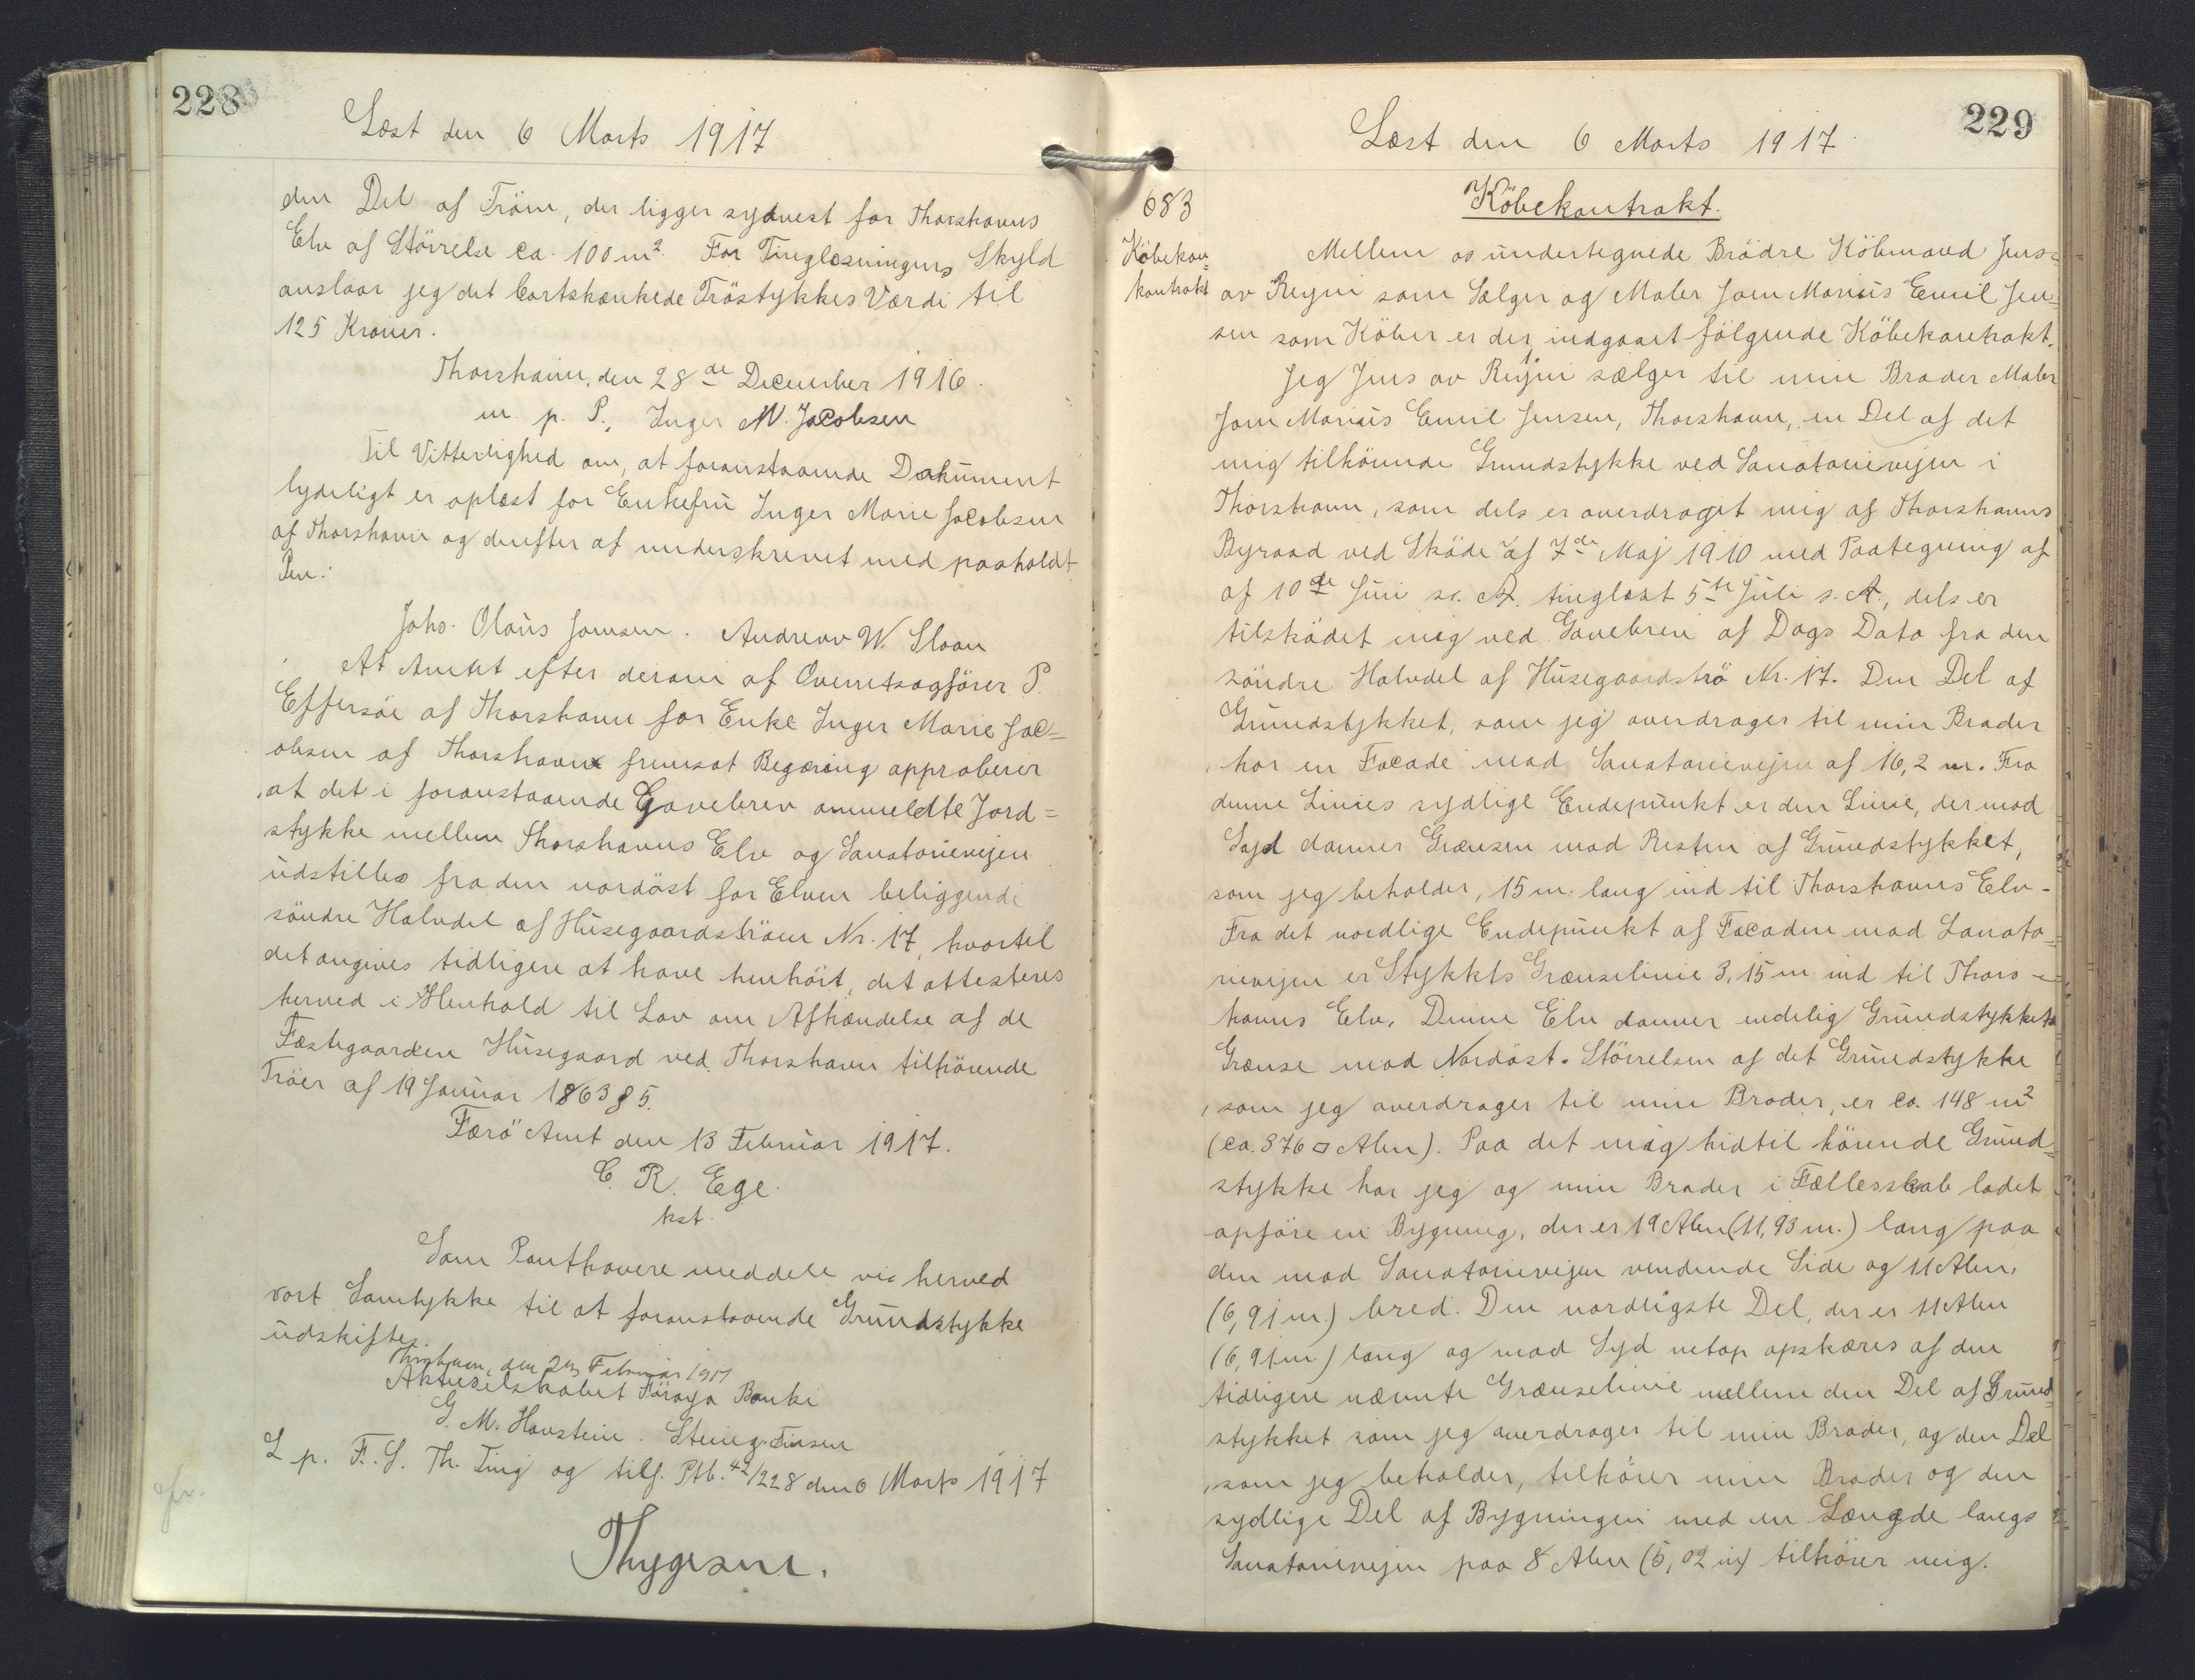 228
Læst den 6 Marts 1917
den Del af Tröen, der ligger sydvest for Thorshavns
Elv af Störrelse ca. 100 m². For Tinglæsningens Skyld
anslaar jeg det bortskænkede Tröstykkes Værdi til
125 Kroner.
Thorshavn, den 28de December 1916.
m. p. P., Inger M. Jacobsen
Til Vitterlighed om, at foranstaaende Dokument
lydeligt er oplæst for Enkefru Inger Marie Jacobsen
af Thorshavn og derefter af underskrevet med paaholdt
Pen:
Johs. Olaus Joensen. Andrew W. Sloan
At Amtet efter derom af Overretssagförer P.
Effersöe af Thorshavn for Enke Inger Marie Jac=
obsen af Thorshavn fremsat Begæring approberer
at det i foranstaaende Gavebrev ommeldte Jord=
stykke mellem Thorshavns Elv og Sanatorievejen
udstilles fra den nordöst for Elven beliggende
söndre Halvdel af Husegaardströen Nr. 17, hvortil
det angives tidligere at have henhört, det attesteres
herved i Henhold til Lov om Afhændelse af de
Fæstegaarden Husegaard ved Thorshavn tilhörende
Tröer af 19 Januar 1863 § 5.
Færö Amt den 13 Februar 1917.
C. R. Ege.
kst.
Som Panthavere meddele vi herved
vort Samtykke til at foranstaaende Grundstykke
udskiftes.
Thorshavn, den 2 Februar 1917
Aktieselskabet Föroya Banki
G. M. Havstein. Steing.
L p. F. S. Th. Ting og tilf. Ptb. 42/228 den 6 Marts 1917
Thygesen.
229
Læst den 6 Marts 1917.
683
Köbekontrakt.
Köbekon=
kontrakt
Mellem os undertegnede Brödre Köbmand Jens
av Reyni som Sælger og Maler Joen Marius Emil Jen=
sen som Köber er der indgaaet fölgende Köbekontrakt.
Jeg Jens av Reyni sælger til min Broder Maler
Joen Marius Emil Jensen, Thorshavn, en Del af det
mig tilhörende Grundstykke ved Sanatorievejen i
Thorshavn, som dels er overdraget mig af Thorshavns
Byraad ved Sköde af 7de Maj 1910 med Paategning af
af 10de Juni s. A. tinglæst 5te Juli s. A., dels er
tilsködet mig ved Gavebrev af Dags Dato fra den
söndre Halvdel af Husegaardströ Nr. 17. Den Del af
Grundstykket, som jeg overdrager til min Broder
har en Facade mod Sanatorievejen af 16,2 m. Fra
denne Linies sydlige Endepunkt er den Linie, der mod
Syd danner Grænsen mod Resten af Grundstykket,
som jeg beholder, 15 m. lang ind til Thorshavns Elv -
Fra det nordlige Endepunkt af Facaden mod Sanato=
rievejen er Stykkets Grænselinie 3,15 m. ind til Thors-
havns Elv. Denne Elv danner endelig Grundstykkets
Grænse mod Nordöst. Störrelsen af det Grundstykke
som jeg overdrager til min Broder, er ca. 148 m²
(ca. 376 □ Alen). Paa det mig hidtil hörende Grund=
stykke har jeg og min Broder i Fællesskab ladet
opföre en Bygning, der er 19 Alen (11,93 m.) lang paa
den mod Sanatorievejen vendende Side og 11 Alen.
(6,91 m.) bred. Den nordligste Del, der er 11 Alen
(6,91 m.) lang og mod Syd netop opskæres af den
tidligere nævnte Grænselinie mellem den Del af Grund=
stykket som jeg overdrager til min Broder, og den Del
som jeg beholder, tilhörer min Broder og den
sydlige Del af Bygningen med en Længde langs
Sanatorievejen paa 8 Alen (5,02 m) tilhörer mig.